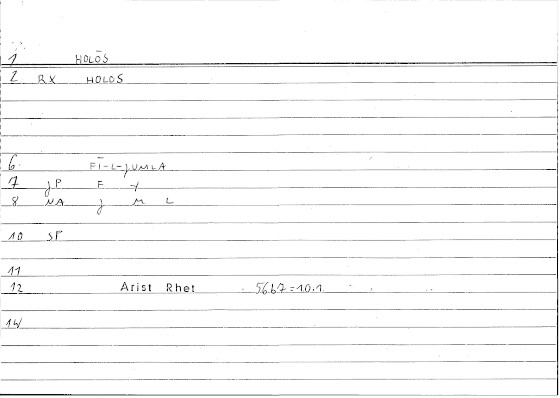 1 HOLŌS
2 RX HOLOS
6 FĪ-L-JUMLA
7 JP F Y
8 NA J M L
10 SF
11
12 Arist Rhet 56b7=10.1
14